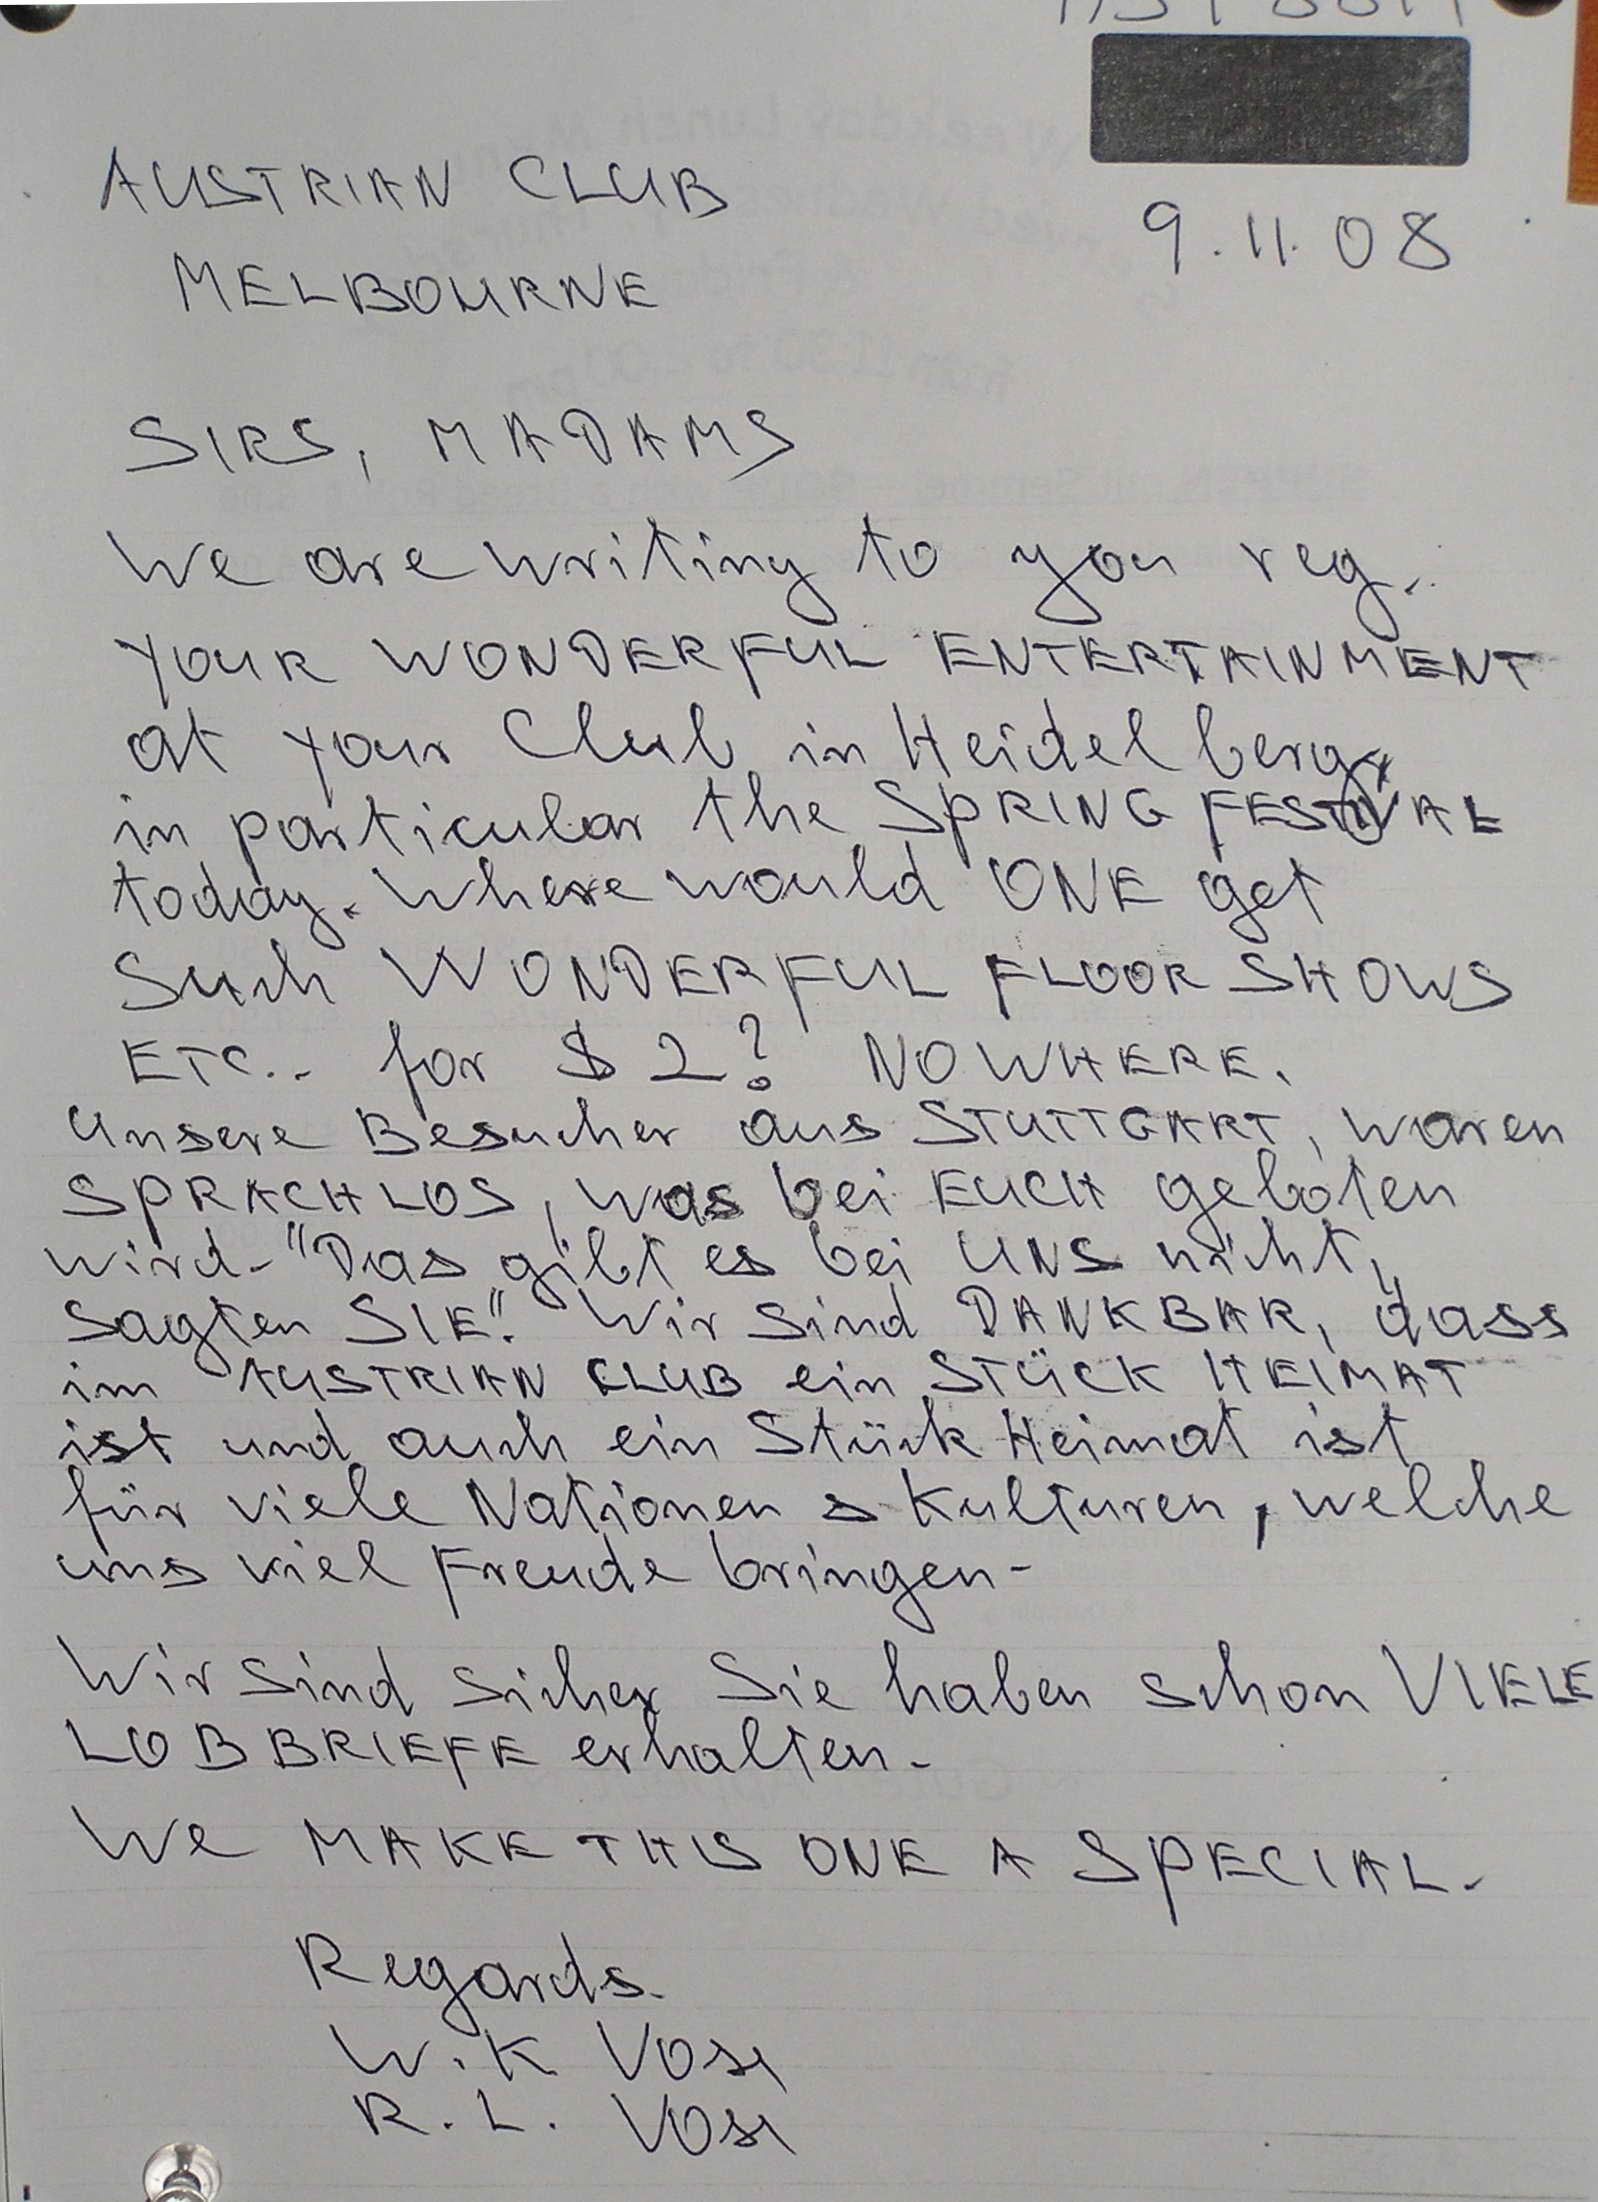 AUSTRIAN CLUB
9.11.08
MELBOURNE
SIRS, MADAMS
We are writing to you reg.
YOUR WONDERFUL ENTERTAINMENT
at your Club in Heidelberg,
in particular the SPRING FESTIVAL
today. Where would ONE get
Such WONDERFUL FLOOR SHOWS
ETC.. for $2? NOWHERE.
Unsere Besucher aus STUTTGART, waren
SPRACHLOS, was bei EUCH geboten
wird. "Das gibt es bei UNS nicht,"
sagten SIE". Wir sind DANKBAR, dass
im AUSTRIAN CLUB ein STÜCK HEIMAT
ist und auch ein Stück Heimat ist
für viele Nationen & Kulturen, welche
uns viel Freude bringen-
Wir sind sicher Sie haben schon VIELE
LOBBRIEFE erhalten.
We MAKE THIS ONE A SPECIAL.
Regards.
W.K
R.L.